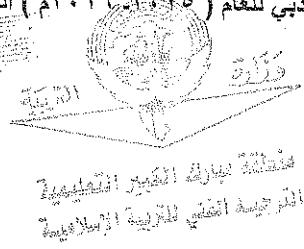 دبي للعام (٢٠١٥-٢٠١٦م) ال
وزارة
التربية
منطقة مبارك الكبير التعليمية
التوجيه الفني للتربية الإسلامية